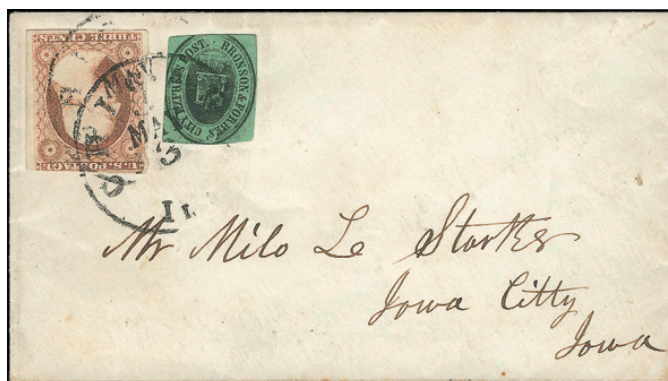 THREE CENTS
U.S. POSTAGE
BRONSON & FORBES' CITY EXPRESS POST.
MAY
MAY
5
Mr Milo Le Starker
Iowa Citty
Iowa